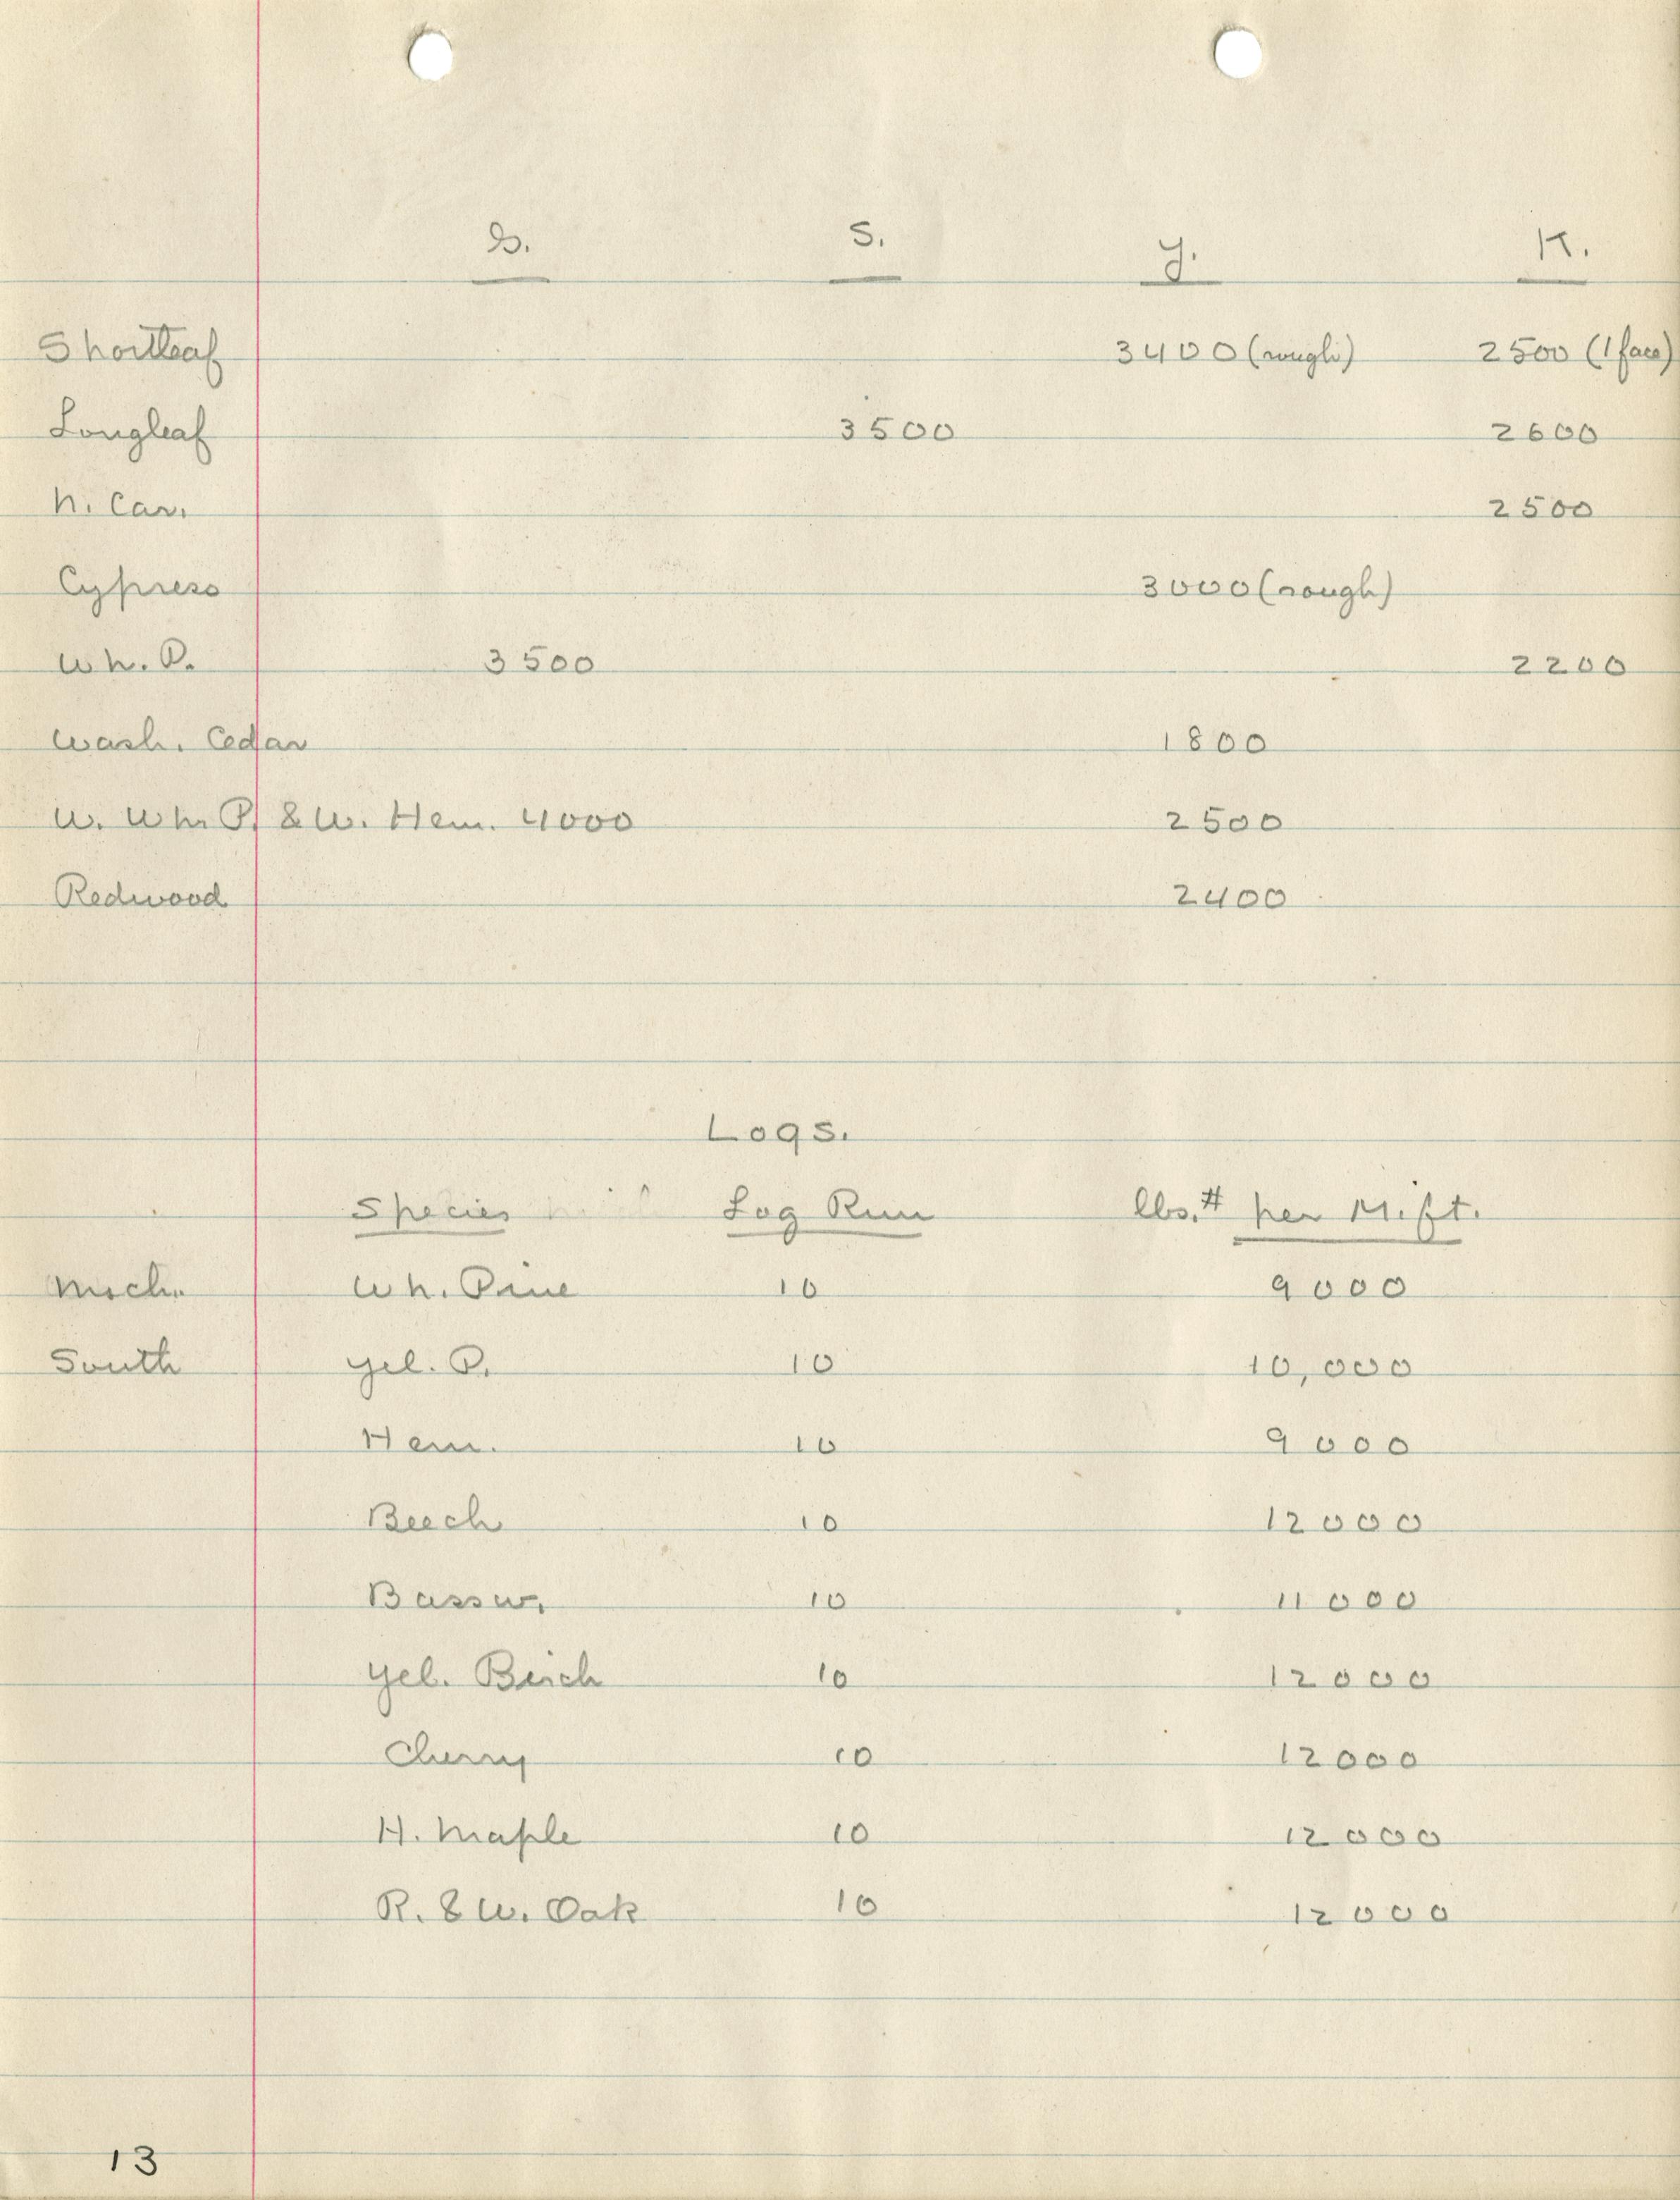 G. S. J. K.
Shortleaf 3400 (rough) 2500 (1 face)
Longleaf 3500 2600
N. Car. 2500
Cypress 3000 (rough)
Wh. P. 3500 2200
Wash. Cedar 1800
W. Wh. P. & W. Hem. 4000 2500
Redwood 2400
Logs.
Species Log Run lbs.# per M.ft.
Mich. Wh. Pine 10 9000
South Yel. P. 10 10,000
Hem. 10 9000
Beech 10 12000
Bassw. 10 11000
Yel. Birch 10 12000
Cherry 10 12000
H. Maple 10 12000
R. & W. Oak 10 12000
13